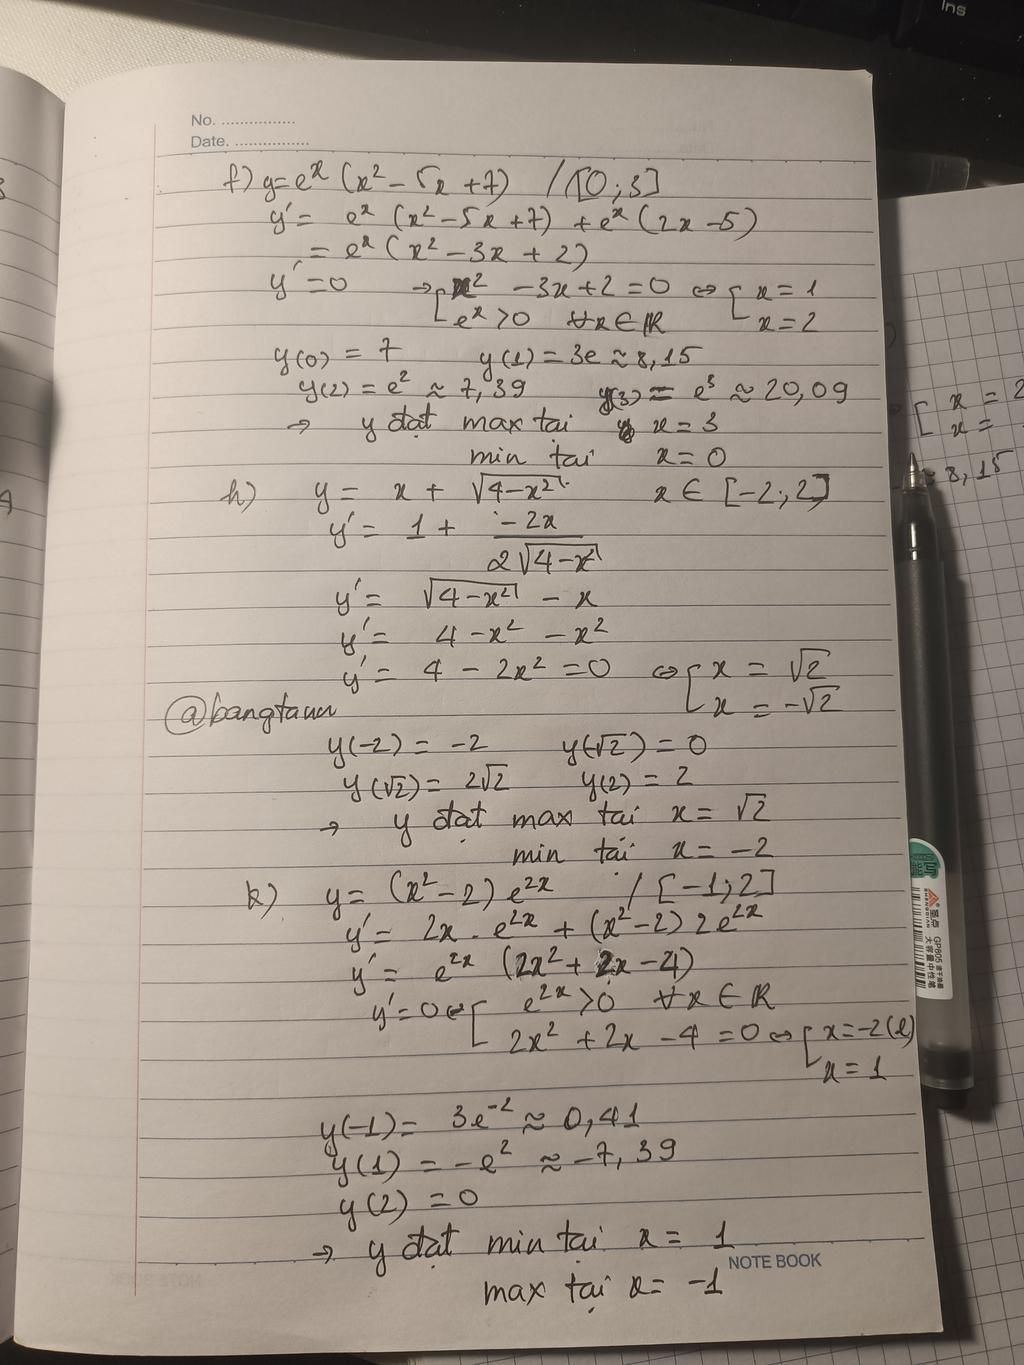 Ins
No. ................
Date. ................
f) y = eˣ (x² - 5x + 7) / [0; 3]
y' = eˣ (x² - 5x + 7) + eˣ (2x - 5)
= eˣ (x² - 3x + 2)
y' = 0 → [ x² - 3x + 2 = 0 ⇔ [ x = 1
eˣ > 0 ∀x ∈ ℝ x = 2
y(0) = 7 y(1) = 3e ≈ 8,15
y(2) = e² ≈ 7,39 y(3) = e³ ≈ 20,09
→ y đạt max tại x = 3
min tại x = 0
h) y = x + √(4-x²) x ∈ [-2; 2]
y' = 1 + (-2x)/(2√(4-x²))
y' = √(4-x²) - x
y' = 4 - x² - x²
y' = 4 - 2x² = 0 ⇔ [ x = √2
x = -√2
@bangtaun
y(-2) = -2 y(-√2) = 0
y(√2) = 2√2 y(2) = 2
→ y đạt max tại x = √2
min tại x = -2
k) y = (x² - 2) e²ˣ / [-1; 2]
y' = 2x . e²ˣ + (x² - 2) 2e²ˣ
y' = e²ˣ (2x² + 2x - 4)
y' = 0 ⇔ [ e²ˣ > 0 ∀x ∈ ℝ
2x² + 2x - 4 = 0 ⇔ [ x = -2 (l)
x = 1
y(-1) = 3e⁻² ≈ 0,41
y(1) = -e² ≈ -7,39
y(2) = 0
→ y đạt min tại x = 1
max tại x = -1
NOTE BOOK
[ x = 2
x =
= 8,15
圣点
SHENGDIAN
GP805 速干油墨
大容量中性笔